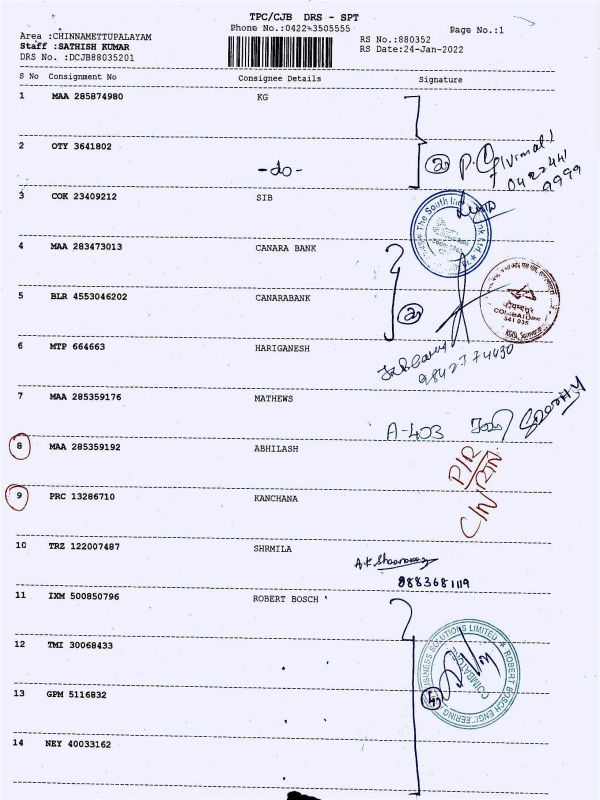 TPC/CJB DRS - SPT
Phone No.:0422-3505555
Page No.:1
Area :CHINNAMETTUPALAYAM
RS No.:880352
Staff :SATHISH KUMAR
RS Date:24-Jan-2022
DRS No. :DCJB88035201
S No Consignment No Consignee Details Signature
1 MAA 285874980 KG
2 OTY 3641802
-do-
2 P. (Vimal)
0422441
9999
3 COK 23409212 SIB
The South Ind
4 MAA 283473013 CANARA BANK
5 BLR 4553046202 CANARABANK
2
COIMBATORE
641 035
6 MTP 664663 HARIGANESH
9842774030
7 MAA 285359176 MATHEWS
A-403
8 MAA 285359192 ABHILASH
P/R
C/N RTN
9 PRC 13286710 KANCHANA
10 TRZ 122007487 SHRMILA
9883681119
11 IXM 500850796 ROBERT BOSCH
BUSINESS SOLUTIONS LIMITED
ROBERT BOSCH ENGINEERING
COIMBATORE
4
12 TMI 30068433
13 GPM 5116832
14 NEY 40033162